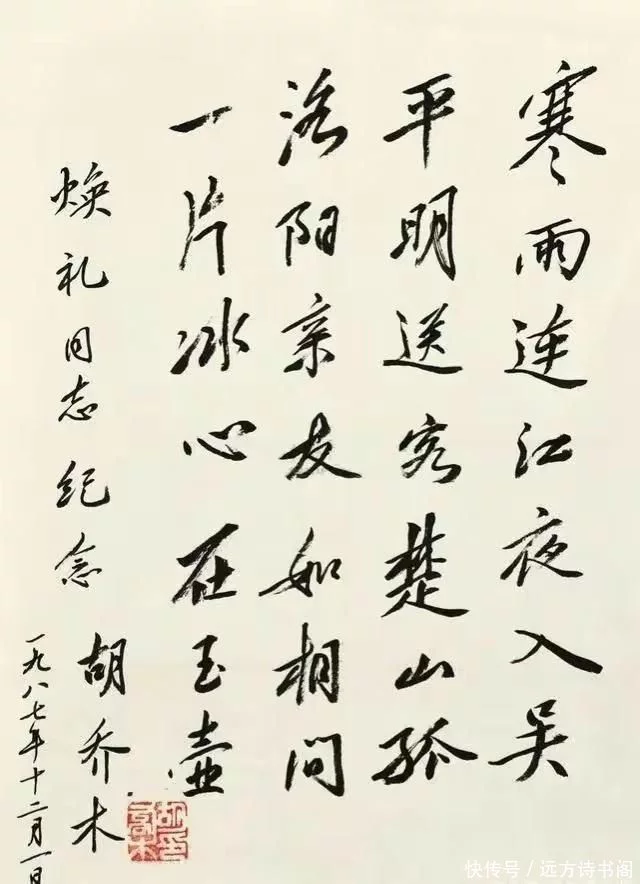 寒雨連江夜入吴
平明送客楚山孤
洛阳亲友如相问
一片冰心在玉壶
焕礼同志纪念
胡乔木
一九八七年十二月一日
胡印
喬木
快传号 / 远方诗书阁